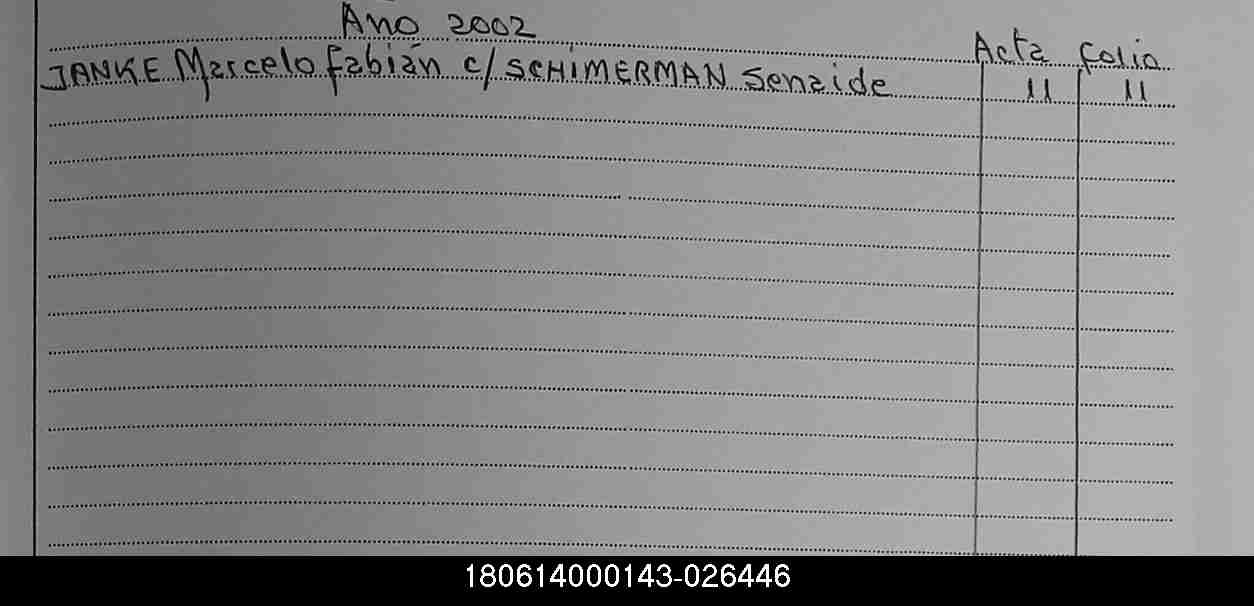 Año 2002
Acta Folio
JANKE Marcelo Fabián c/ SCHIMERMAN Senaide 11 11
180614000143-026446